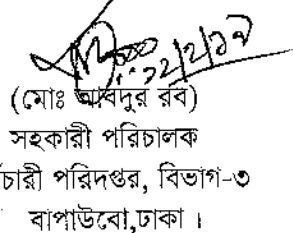 ১২/২/১৭
(মোঃ আবদুর রব)
সহকারী পরিচালক
চারী পরিদপ্তর, বিভাগ-৩
বাপাউবো,ঢাকা ।